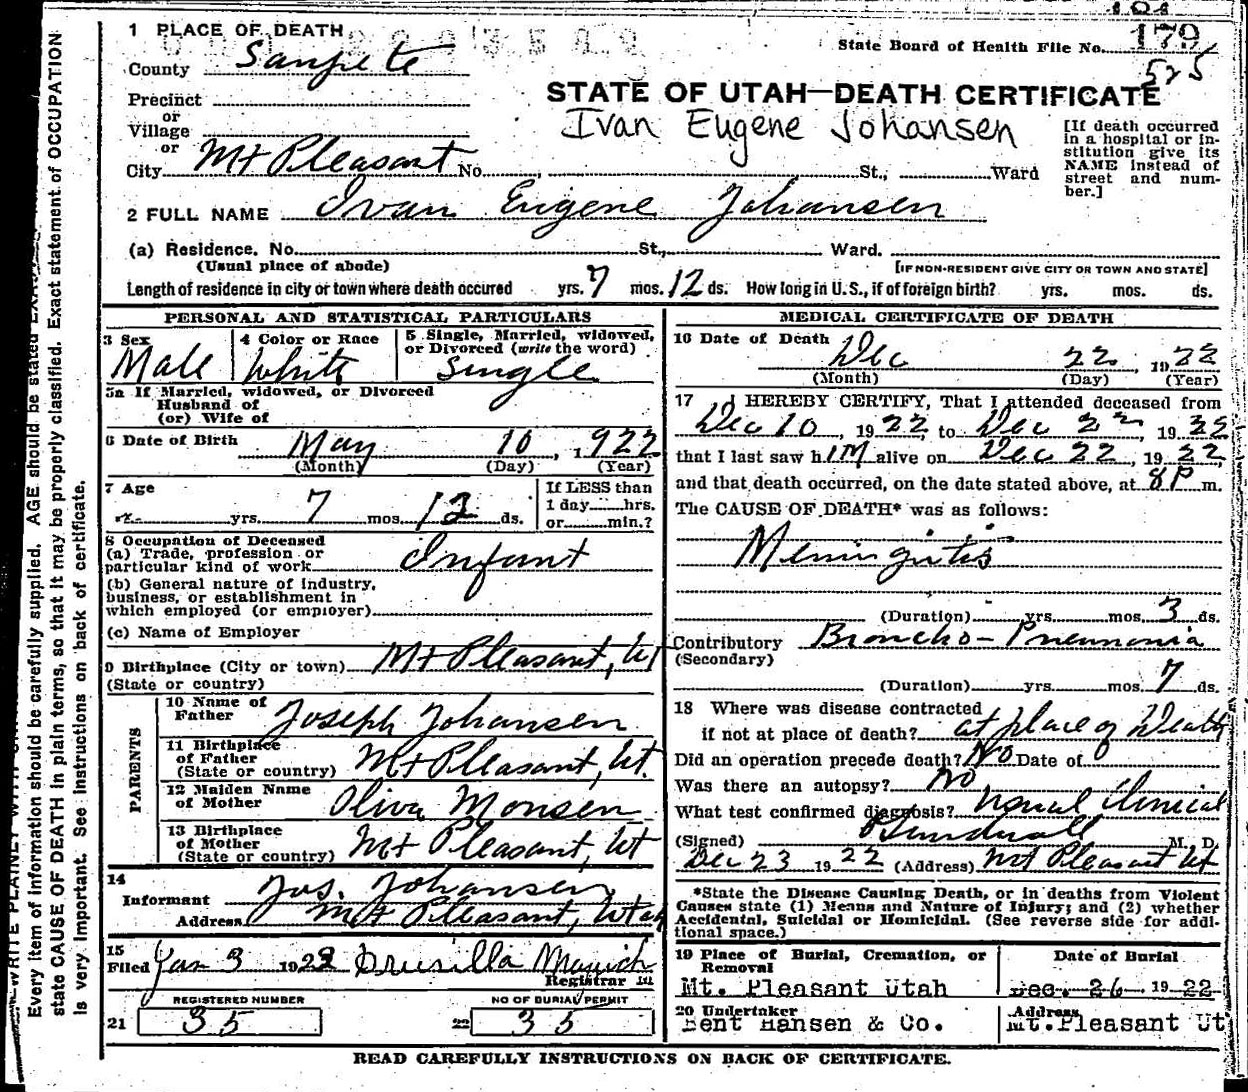 1 PLACE OF DEATH
State Board of Health File No. 179
525
County Sanpete
STATE OF UTAH—DEATH CERTIFICATE
Precinct
or
Village
or
Ivan Eugene Johansen
[If death occurred in a hospital or institution give its NAME instead of street and number.]
City Mt Pleasant No. , St., Ward
2 FULL NAME Ivan Eugene Johansen
(a) Residence. No. St., Ward.
(Usual place of abode)
[IF NON-RESIDENT GIVE CITY OR TOWN AND STATE]
Length of residence in city or town where death occured yrs. 7 mos. 12 ds. How long in U.S., if of foreign birth? yrs. mos. ds.
PERSONAL AND STATISTICAL PARTICULARS
3 Sex
Male
4 Color or Race
White
5 Single, Married, widowed, or Divorced (write the word)
Single
5a If Married, widowed, or Divorced
Husband of
(or) Wife of
6 Date of Birth May 10, 1922
(Month) (Day) (Year)
7 Age
yrs. 7 mos. 12 ds.
If LESS than
1 day hrs.
or min.?
8 Occupation of Deceased
(a) Trade, profession or
particular kind of work Infant
(b) General nature of industry,
business, or establishment in
which employed (or employer)
(c) Name of Employer
9 Birthplace (City or town) Mt Pleasant, Ut
(State or country)
PARENTS
10 Name of
Father Joseph Johansen
11 Birthplace
of Father
(State or country) Mt Pleasant, Ut.
12 Maiden Name
of Mother Oliva Monsen
13 Birthplace
of Mother
(State or country) Mt Pleasant, Ut
14
Informant Jos. Johansen
Address Mt Pleasant, Utah
15
Filed Jan 3 1923 Drusilla
Registrar
REGISTERED NUMBER
21 35
NO OF BURIAL PERMIT
22 35
MEDICAL CERTIFICATE OF DEATH
16 Date of Death Dec 22, 1922
(Month) (Day) (Year)
17 I HEREBY CERTIFY, That I attended deceased from
Dec 10, 1922, to Dec 22, 1922
that I last saw h im alive on Dec 22, 1922,
and that death occurred, on the date stated above, at 8 P m.
The CAUSE OF DEATH* was as follows:
Meningitis
(Duration) yrs. mos. 3 ds.
Contributory Broncho-Pneumonia
(Secondary)
(Duration) yrs. mos. 7 ds.
18 Where was disease contracted
if not at place of death? at place of Death
Did an operation precede death? No Date of 0
Was there an autopsy? No
What test confirmed diagnosis? usual Clinical
(Signed) M. D.
Dec 23 1922 (Address) Mt Pleasant Ut
*State the Disease Causing Death, or in deaths from Violent
Causes state (1) Means and Nature of Injury; and (2) whether
Accidental, Suicidal or Homicidal. (See reverse side for addi-
tional space.)
19 Place of Burial, Cremation, or
Removal
Mt. Pleasant Utah
Date of Burial
Dec. 26 1922
20 Undertaker
Bent Hansen & Co.
Address
Mt. Pleasant Ut
READ CAREFULLY INSTRUCTIONS ON BACK OF CERTIFICATE.
Every item of information should be carefully supplied. AGE should be stated
state CAUSE OF DEATH in plain terms, so that it may be properly classified. Exact statement of OCCUPATION
is very important. See instructions on back of certificate.